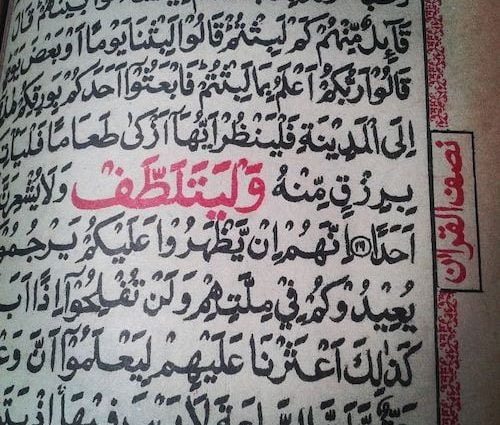 قَآئِلٌ مِّنْهُمْ كَمْ لَبِثْتُمْ قَالُوْا لَبِثْنَا يَوْمًا اَوْ بَعْضَ
قَالُوْا رَبُّكُمْ اَعْلَمُ بِمَا لَبِثْتُمْ فَابْعَثُوْٓا اَحَدَكُمْ بِوَرِقِكُمْ
اِلَى الْمَدِيْنَةِ فَلْيَنْظُرْ اَيُّهَآ اَزْكٰى طَعَامًا
بِرِزْقٍ مِّنْهُ وَلْيَتَلَطَّفْ وَلَا يُشْعِرَنَّ
اَحَدًا ۝١٩ اِنَّهُمْ اِنْ يَّظْهَرُوْا عَلَيْكُمْ
يُعِيْدُوْكُمْ فِيْ مِلَّتِهِمْ وَلَنْ تُفْلِحُوْٓا اِذًا
كَذٰلِكَ اَعْثَرْنَا عَلَيْهِمْ لِيَعْلَمُوْٓا اَنَّ
نصف القرآن